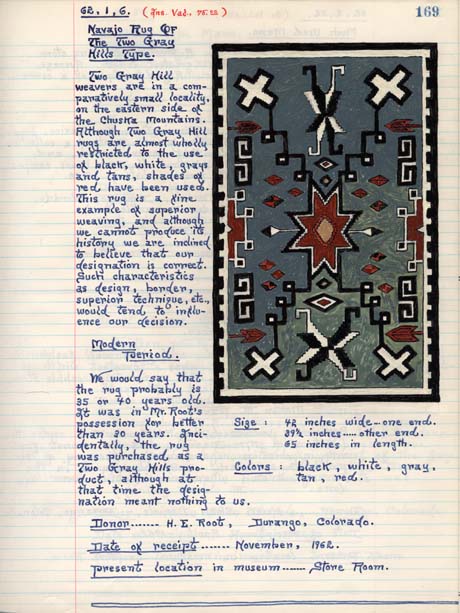 62.1.6. (Ins. Val., 75.00)
169
Navajo Rug Of
The Two Gray
Hills Type.
Two Gray Hill
weavers are in a com-
paratively small locality,
on the eastern side of
the Chuska Mountains.
Although Two Gray Hill
rugs are almost wholly
restricted to the use
of black, white, grays
and tans, shades of
red have been used.
This rug is a fine
example of superior
weaving, and although
we cannot produce its
history we are inclined
to believe that our
designation is correct.
Such characteristics
as design, border,
superior technique, etc.,
would tend to influ-
ence our decision.
Modern
Period.
We would say that
the rug probably is
35 or 40 years old.
It was in Mr. Root's
possession for better
than 30 years. Inci-
dentally, the rug
was purchased as a
Two Gray Hills pro-
duct, although at
that time the desig-
nation meant nothing to us.
Size : 42 inches wide--one end.
39½ inches.....other end.
65 inches in length.
Colors : black, white, gray,
tan, red.
Donor....... H. E. Root, Durango, Colorado.
Date of receipt....... November, 1962.
Present location in museum....... Store Room.